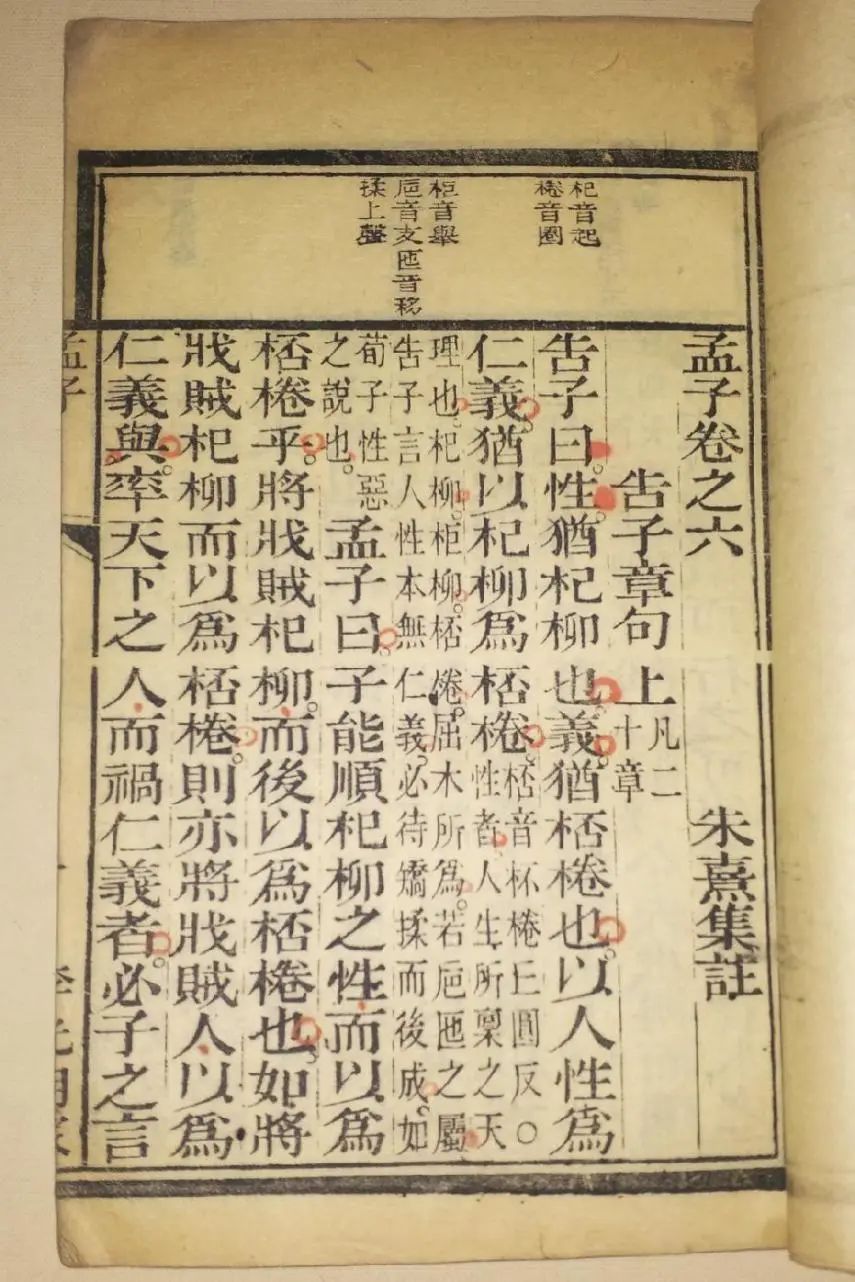 杞音起
棬音圈
柜音舉
巵音支匜音移
揉上聲
孟子卷之六 朱熹集註
告子章句上
凡二
十章
告子曰。性。猶杞柳也。義。猶桮棬也。以人性爲
仁義。猶以杞柳爲桮棬。
桮音杯棬丘圓反○
性者人生所稟之天
理也。杞柳。柜柳。桮棬。屈木所爲。若巵匜之屬
告子言人性本無仁義。必待矯揉而後成。如
荀子性惡
之說也。
孟子曰。子能順杞柳之性而以爲
桮棬乎。將戕賊杞柳。而後以爲桮棬也。如將
戕賊杞柳而以爲桮棬。則亦將戕賊人以爲
仁義與。率天下之人而禍仁義者。必子之言
孟子